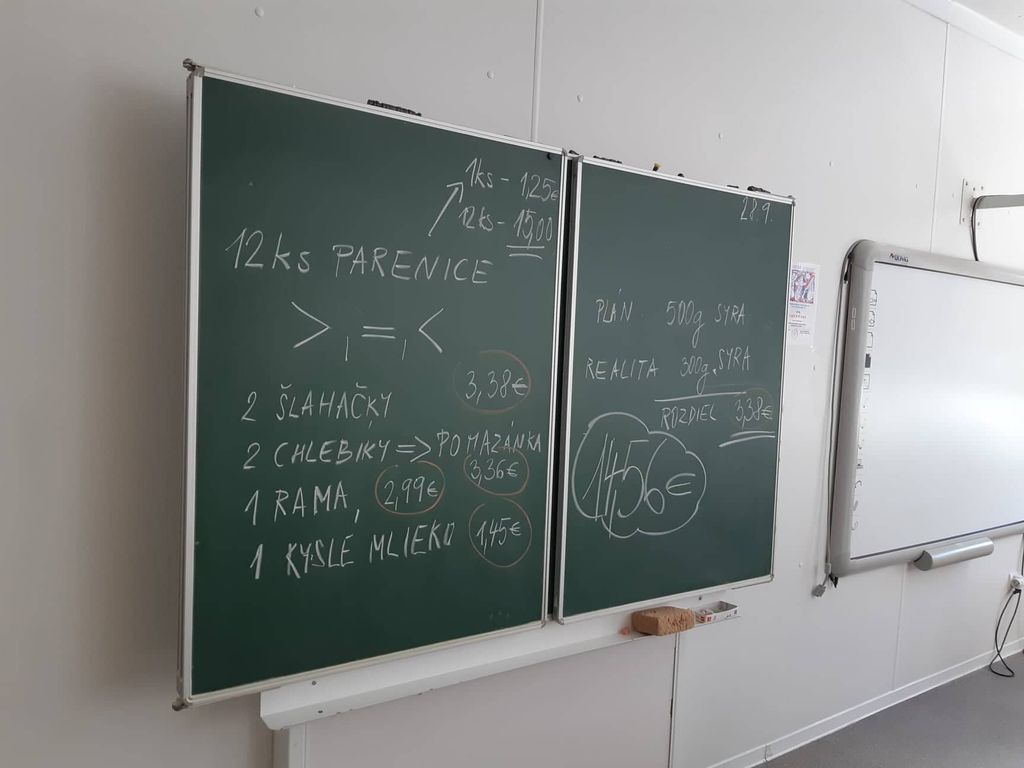 1ks - 1,25€
12ks - 15,00
12ks PARENICE
> , = , <
2 ŠĽAHAČKY 3,38€
2 CHLEBIKY => POMAZÁNKA
3,36€
1 RAMA, 2,99€
1 KYSLÉ MLIEKO 1,45€
28.9.
PLÁN 500g SYRA
REALITA 300g SYRA
ROZDIEL 3,38€
14,56€